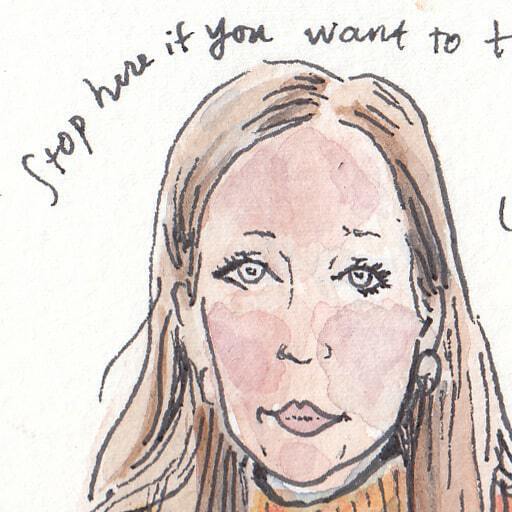 Stop here if you want to t